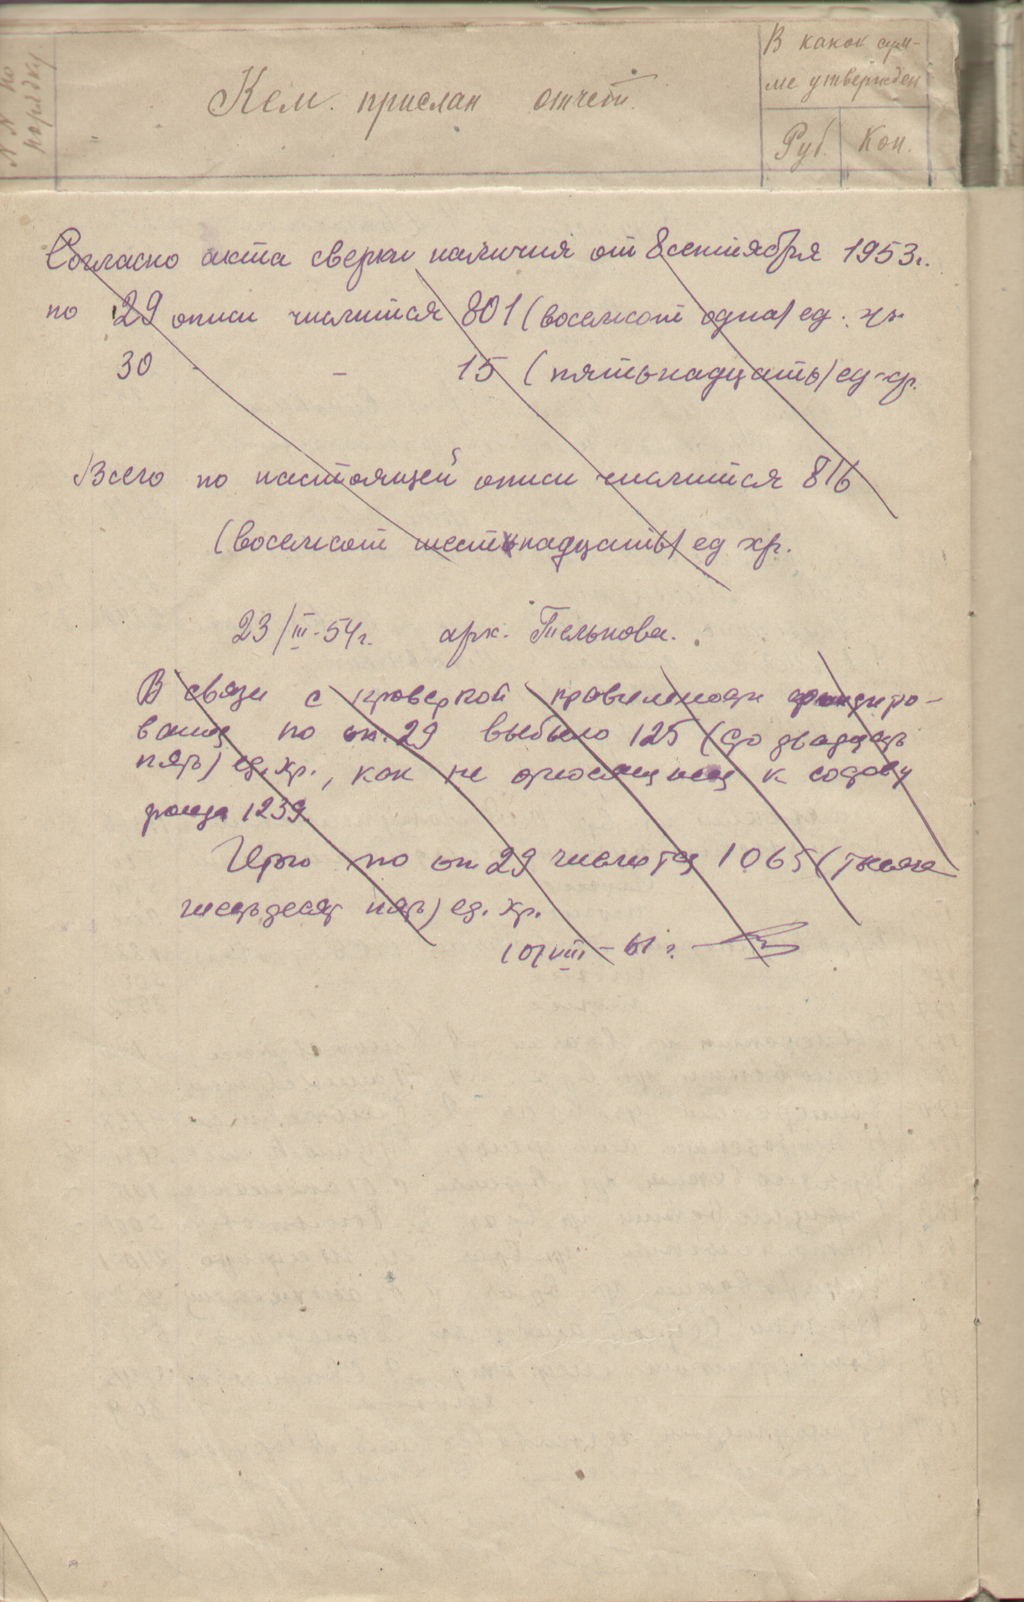 №№ по порядку
Кем прислан отчет.
В какой сум-
ме утвержден
Руб. Коп.
Согласно акта сверки наличия от 8 сентября 1953 г.
по 29 описи числится 801 (восемсот одна) ед. хр
30 - - 15 (пятьнадцать) ед. хр.
Всего по настоящей описи числится 816
(восемсот шестьнадцать) ед хр.
23/III-54 г. арх. Телькова.
В связи с проверкой правильности фондиро-
вания по оп. 29 выбыло 125 (сто двадцать
пять) ед. хр., как не относящиеся к составу
фонда 1239.
Итого по оп 29 числится 1065 (тысяча
шестьдесят пять) ед. хр.
10/VIII-61 г.